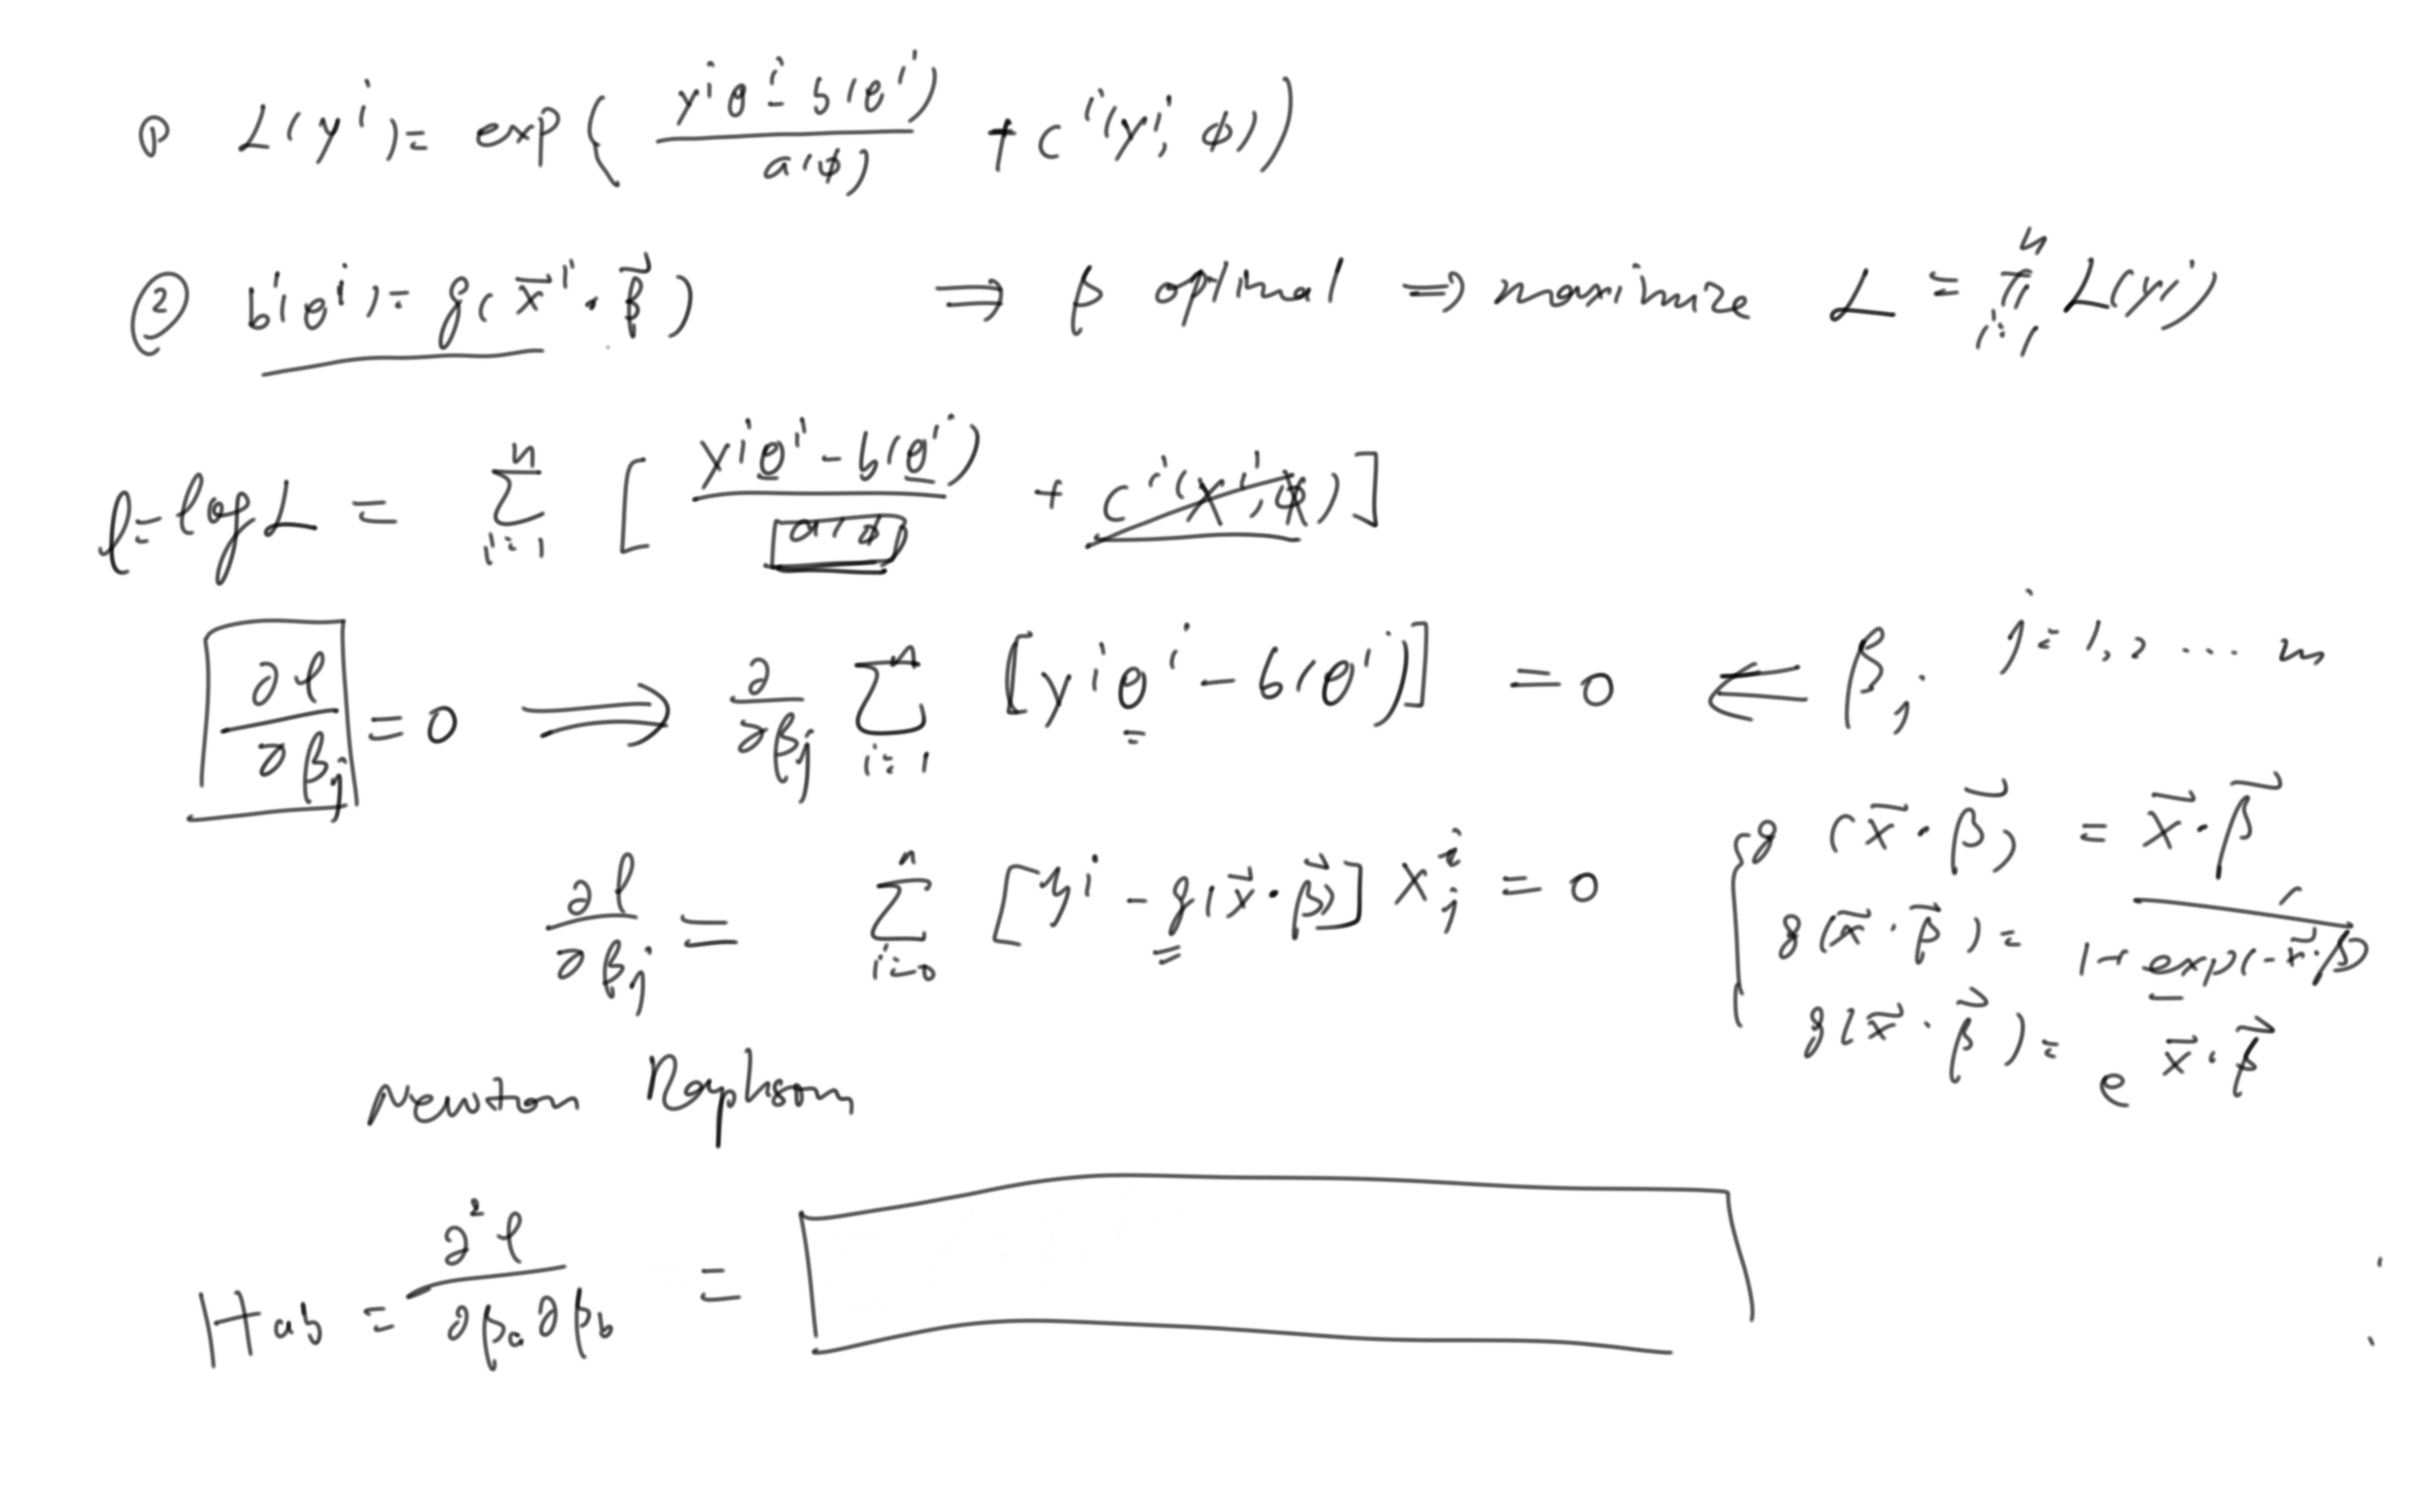 ① L(yⁱ) = exp( (yⁱθⁱ - b(θⁱ)) / a(ϕ) + c(yⁱ, ϕ) )
② b'(θⁱ) = g(x⃗ⁱ · β⃗) ⇒ β optimal ⇒ maximize L = π_{i=1}^{n} L(yⁱ)
l = log L = Σ_{i=1}^{n} [ (yⁱθⁱ - b(θⁱ)) / a(ϕ) + c(yⁱ, ϕ) ]
∂l/∂βⱼ = 0 ⇒ ∂/∂βⱼ Σ_{i=1}^{n} [yⁱθⁱ - b(θⁱ)] = 0 ⇐ βⱼ j = 1, 2, ... m
∂l/∂βⱼ = Σ_{i=0}^{n} [yⁱ - g(x⃗ · β⃗)] xⱼⁱ = 0
g(x⃗ · β⃗) = x⃗ · β⃗
g(x⃗ · β⃗) = 1 / (1 + exp(-x⃗ · β⃗))
g(x⃗ · β⃗) = e^{x⃗ · β⃗}
Newton Raphson
H_{ab} = ∂²l / ∂βₐ∂β_b =